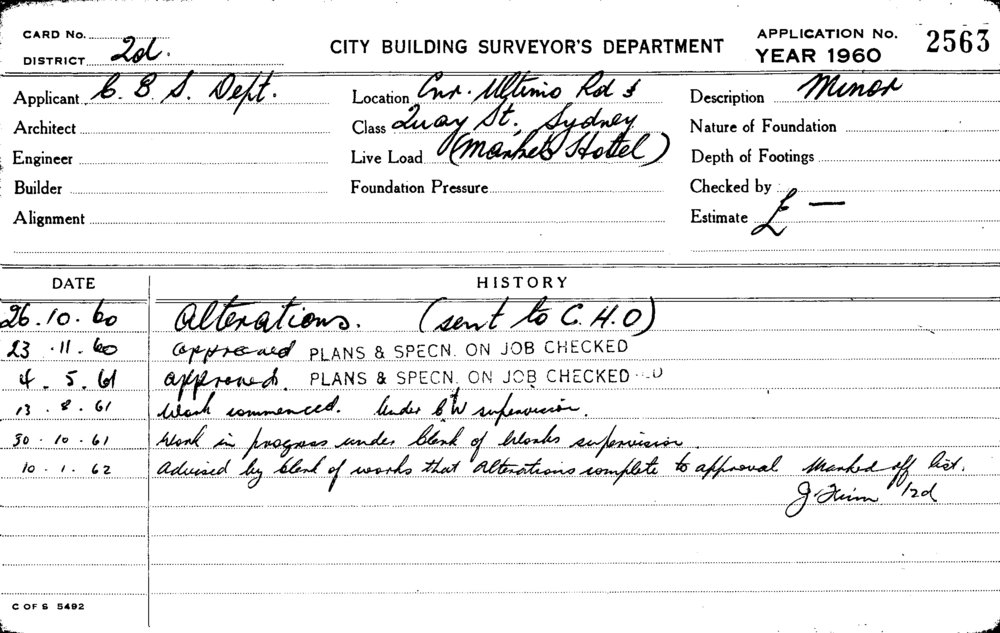 CARD No.
DISTRICT 2d.
CITY BUILDING SURVEYOR'S DEPARTMENT
APPLICATION No. 2563
YEAR 1960
Applicant C. B. S. Dept.
Location Cnr. Ultimo Rd &
Description Minor
Architect
Class Quay St, Sydney
Nature of Foundation
Engineer
Live Load (Markets Hotel)
Depth of Footings
Builder
Foundation Pressure
Checked by
Alignment
Estimate £ —
DATE HISTORY
26.10.60 Alterations. (sent to C.H.O)
23.11.60 approved PLANS & SPECN. ON JOB CHECKED
4.5.61 approved. PLANS & SPECN. ON JOB CHECKED
13.8.61 Work commenced. Under C W supervision.
30.10.61 Work in progress under Clerk of Works supervision.
10.1.62 Advised by Clerk of works that Alterations complete to approval Marked off list.
12d
C OF S 5492